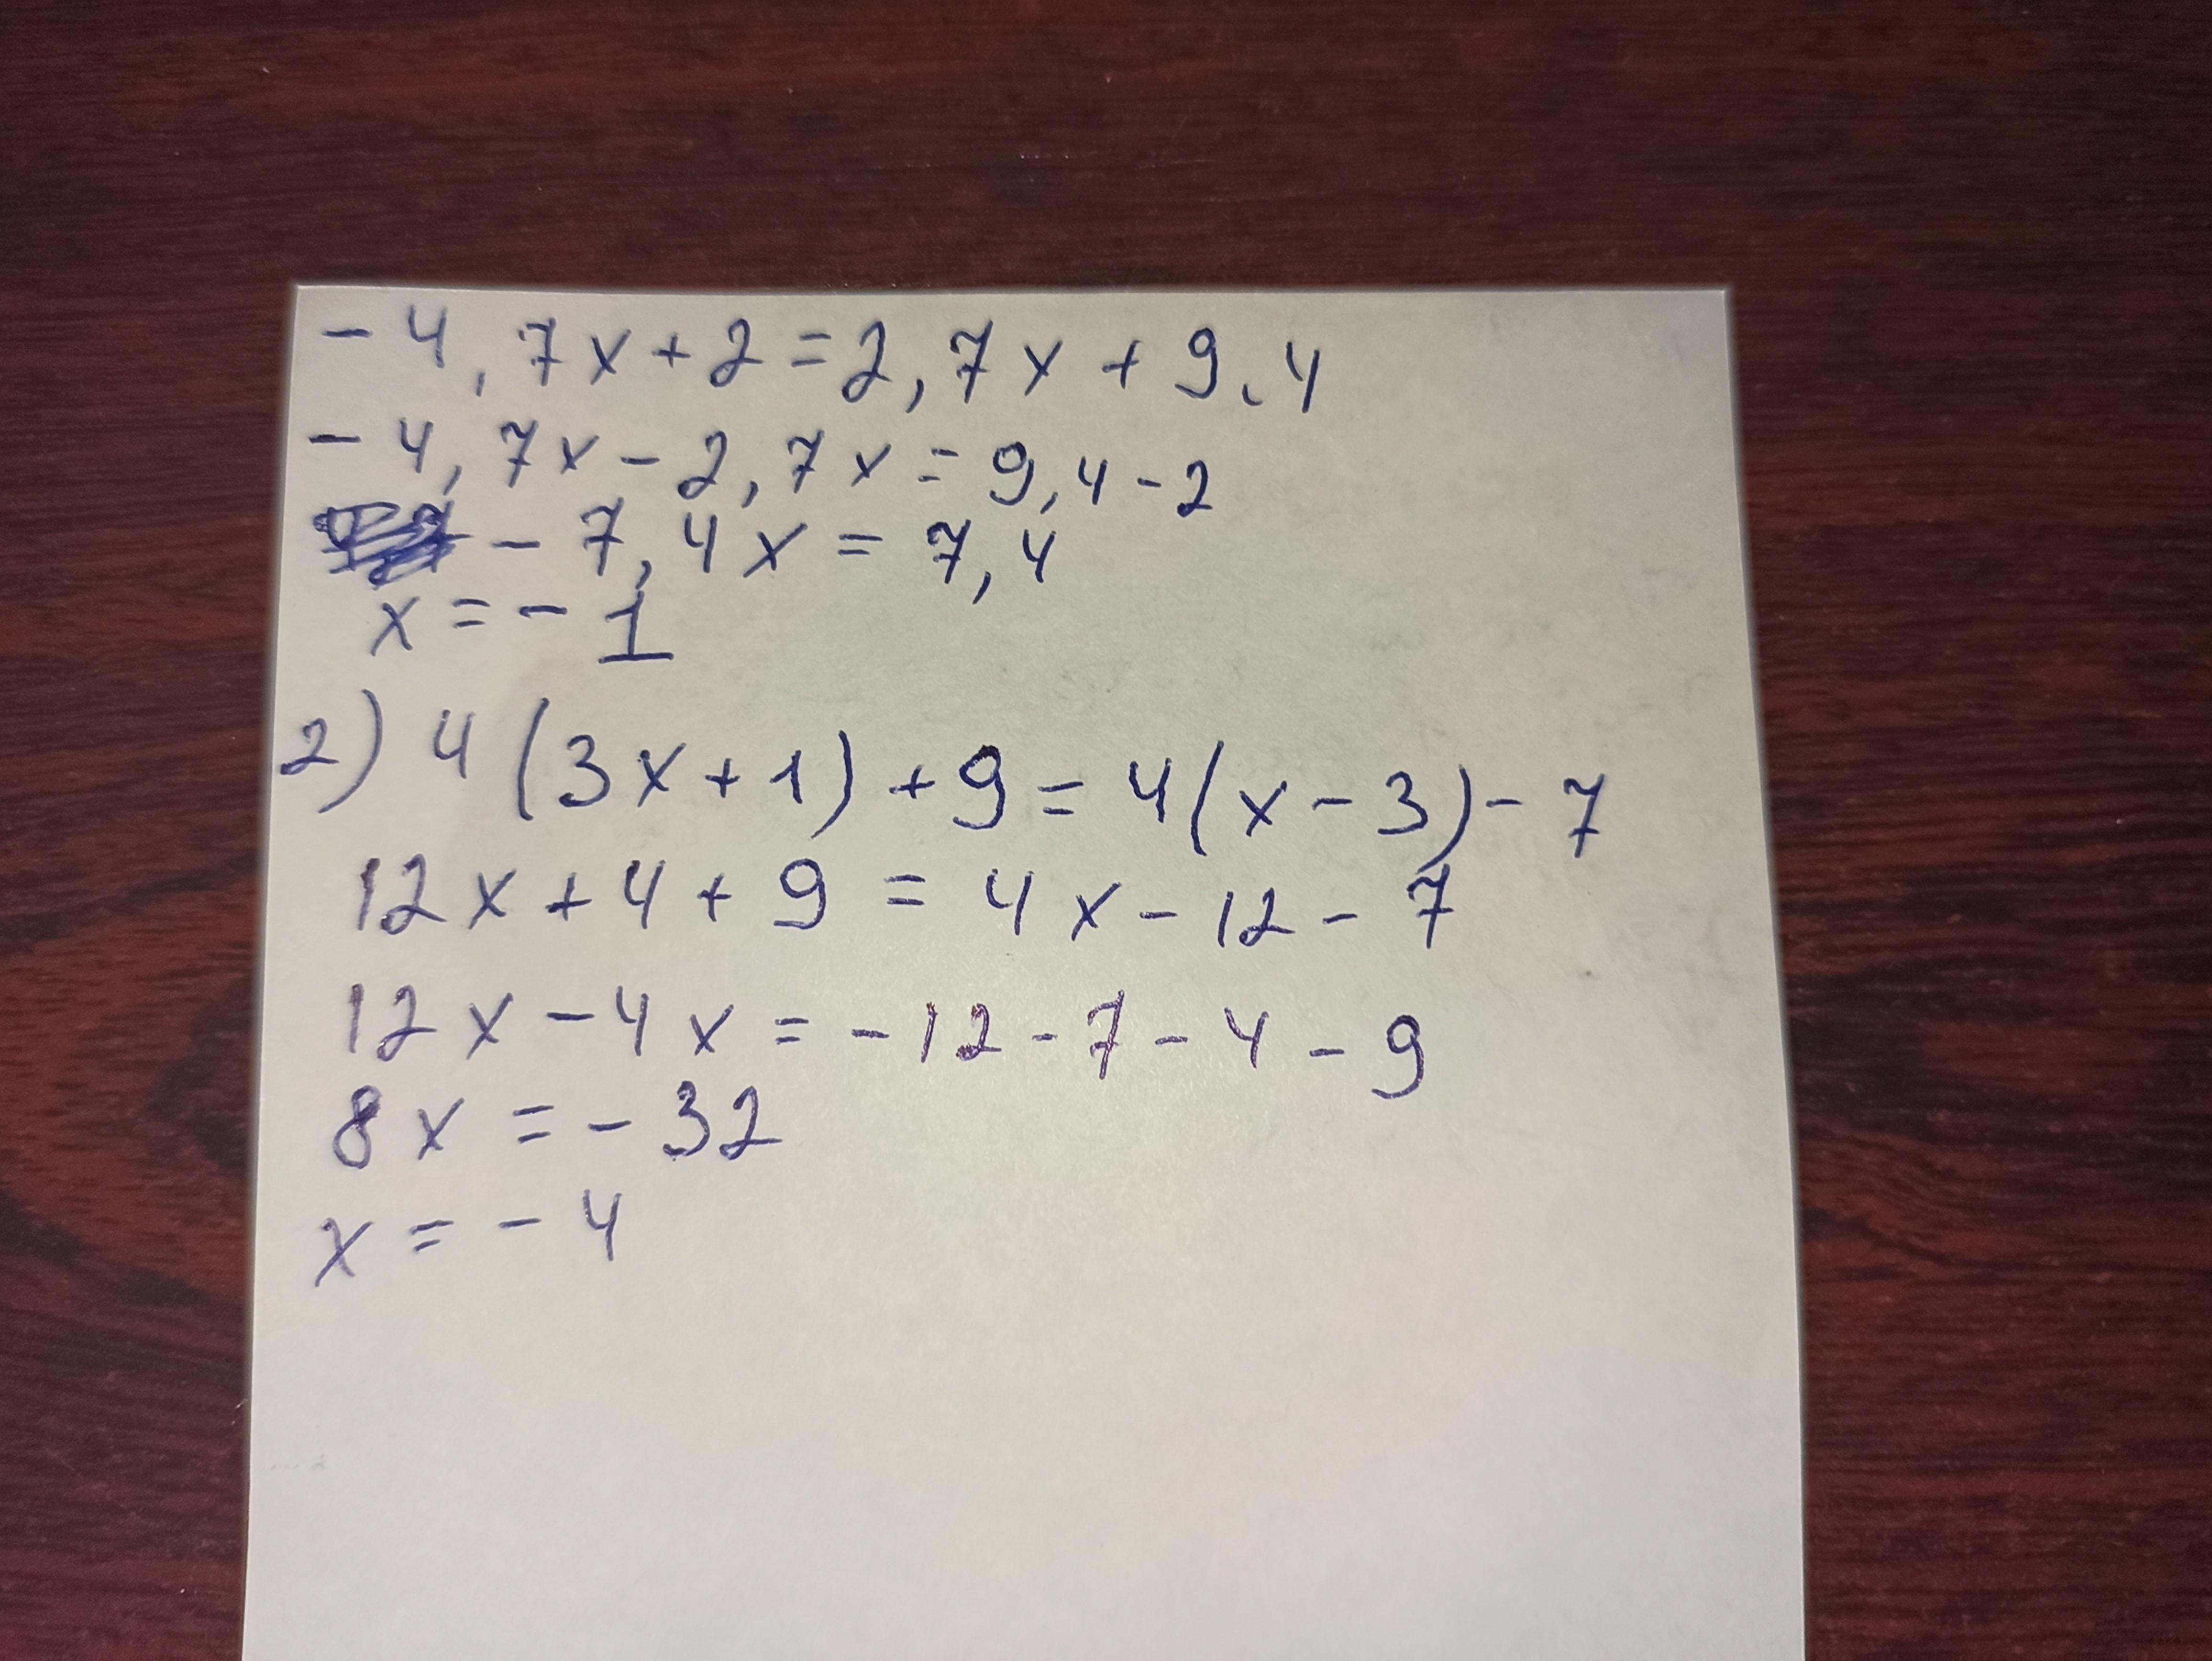 -4,7x+2=2,7x+9,4
-4,7x-2,7x=9,4-2
-7,4x=7,4
x=-1
2) 4(3x+1)+9=4(x-3)-7
12x+4+9=4x-12-7
12x-4x=-12-7-4-9
8x=-32
x=-4